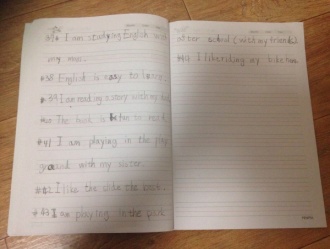 I am studying English with
my mom.
#38 English is easy to learn.
#39 I am reading a story with my
#40 The book is fun to read.
#41 I am playing in the play
ground with my sister.
#42 I like the slide the best.
#43 I am playing in the park
after school (with my friends)
I like riding my bike